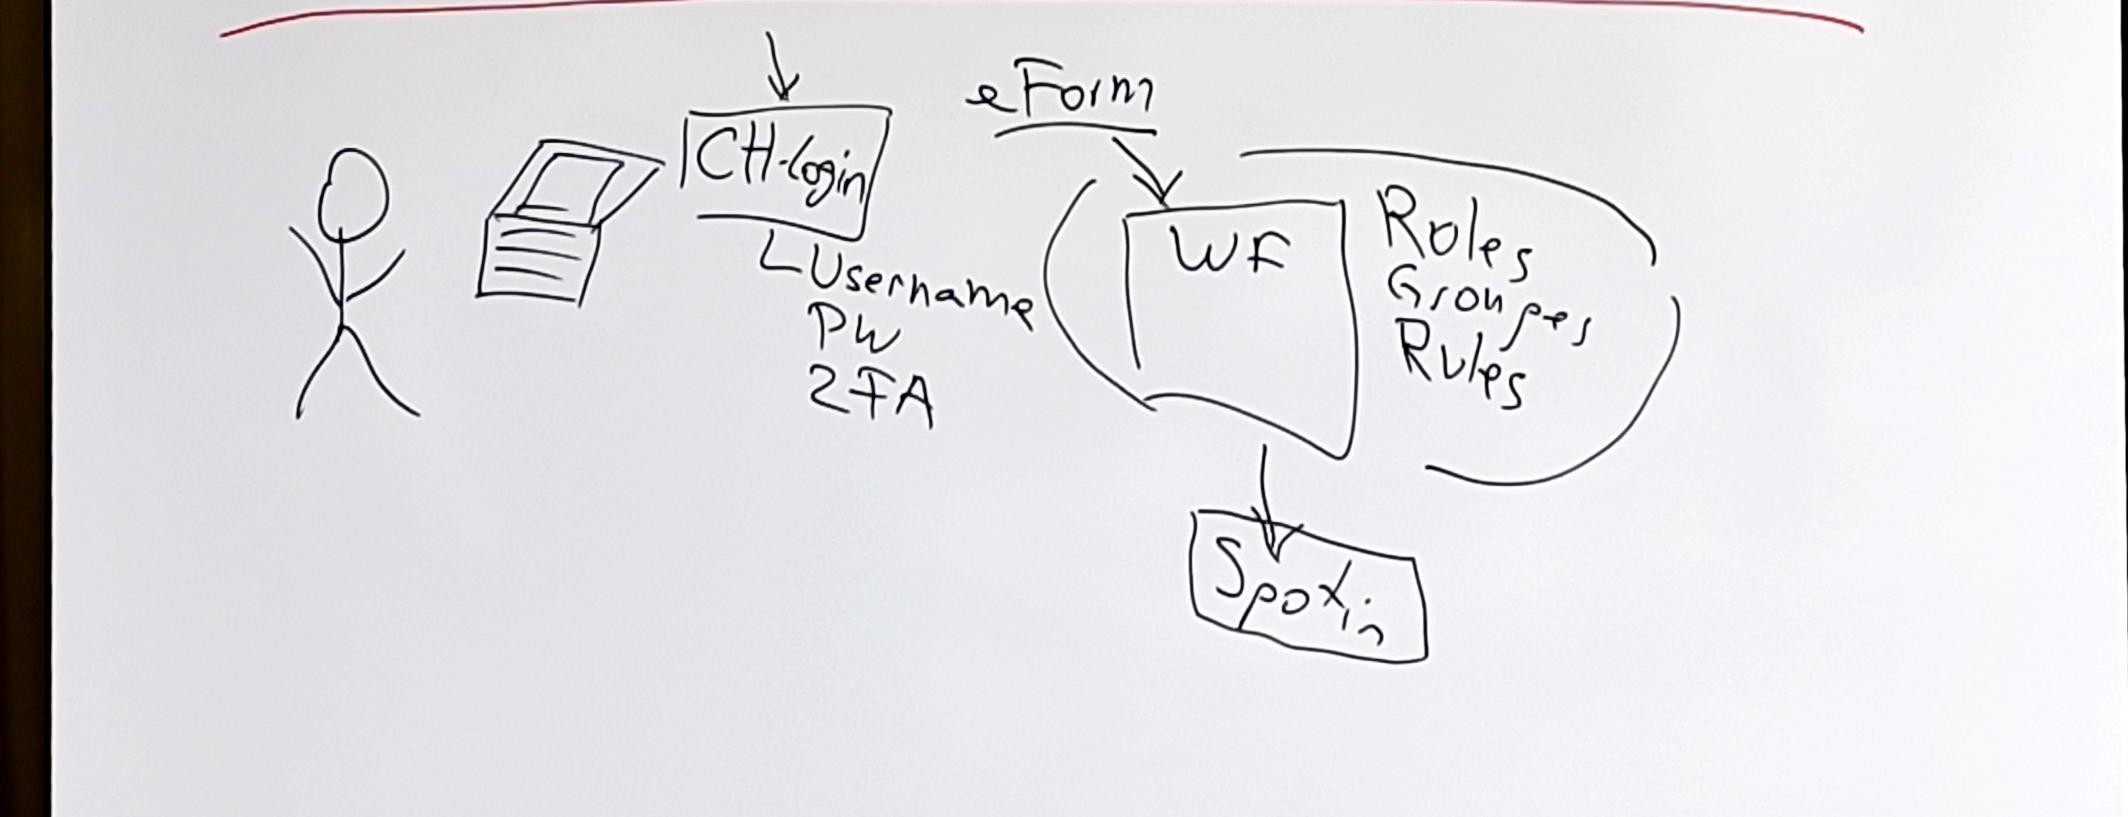 CH-login
Username
PW
2FA
eForm
WF
Roles
Groupes
Rules
Spoxin